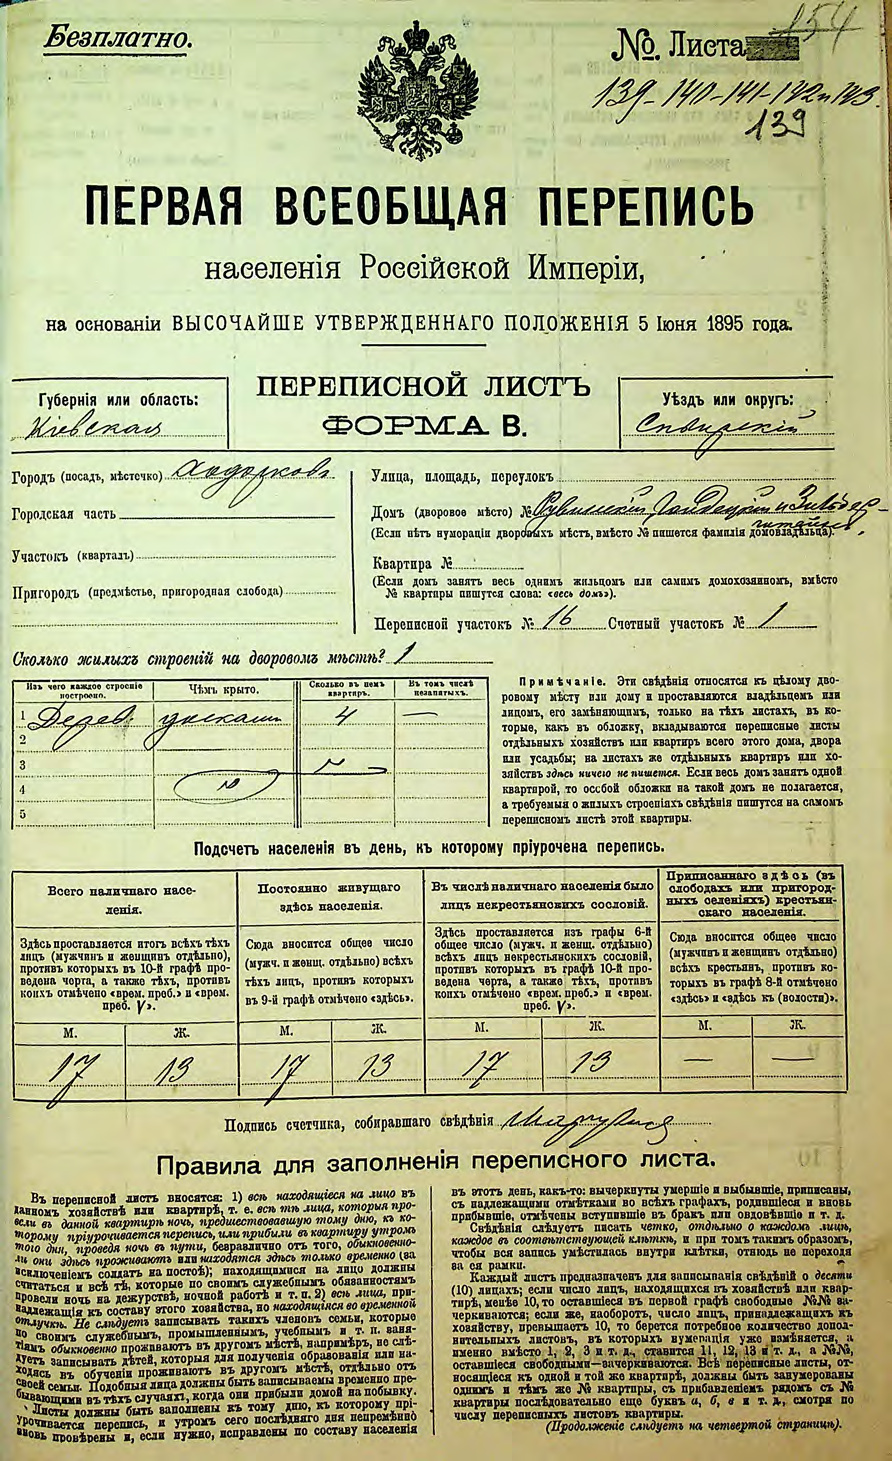 Безплатно.
№. Листа
154
139-140-141-142 и 143.
139
ПЕРВАЯ ВСЕОБЩАЯ ПЕРЕПИСЬ
населенія Россійской Имперіи,
на основаніи ВЫСОЧАЙШЕ УТВЕРЖДЕННАГО ПОЛОЖЕНІЯ 5 Іюня 1895 года.
Губернія или область:
Кіевская
ПЕРЕПИСНОЙ ЛИСТЪ
ФОРМА В.
Уѣздъ или округъ:
Сквирскій
Городъ (посадъ, мѣстечко) Ходорковъ
Городская часть
Участокъ (кварталъ)
Пригородъ (предмѣстье, пригородная слобода)
Улица, площадь, переулокъ
Домъ (дворовое мѣсто) №
(Если нѣтъ нумораціи дворовыхъ мѣстъ, вмѣсто № пишется фамилія домовладѣльца).
Квартира №
(Если домъ занятъ весь однимъ жильцомъ или самимъ домохозяиномъ, вмѣсто
№ квартиры пишутся слова: «весь домъ»).
Переписной участокъ № 16 Счетный участокъ № 1
Сколько жилыхъ строеній на дворовомъ мѣстѣ? 1
Изъ чего каждое строеніе построено.
Чѣмъ крыто.
Сколько въ немъ квартиръ.
Въ томъ числѣ незанятыхъ.
1 Дерев. 4 —
2
3
4
5
Примѣчаніе. Эти свѣдѣнія относятся къ цѣлому дво-
ровому мѣсту или дому и проставляются владѣльцемъ или
лицомъ, его замѣняющимъ, только на тѣхъ листахъ, въ ко-
торые, какъ въ обложку, вкладываются переписные листы
отдѣльныхъ хозяйствъ или квартиръ всего этого дома, двора
или усадьбы; на листахъ же отдѣльныхъ квартиръ или хо-
зяйствъ здѣсь ничего не пишется. Если весь домъ занятъ одной
квартирой, то особой обложки на такой домъ не полагается,
а требуемыя о жилыхъ строеніяхъ свѣдѣнія пишутся на самомъ
переписномъ листѣ этой квартиры.
Подсчетъ населенія въ день, къ которому пріурочена перепись.
Всего наличнаго насе-
ленія.
Здѣсь проставляется итогъ всѣхъ тѣхъ
лицъ (мужчинъ и женщинъ отдѣльно),
противъ которыхъ въ 10-й графѣ про-
ведена черта, а также тѣхъ, противъ
коихъ отмѣчено «врем. преб.» и «врем.
преб. V».
Постоянно живущаго
здѣсь населенія.
Сюда вносится общее число
(мужч. и женщ. отдѣльно) всѣхъ
тѣхъ лицъ, противъ которыхъ
въ 9-й графѣ отмѣчено «здѣсь».
Въ числѣ наличнаго населенія было
лицъ некрестьяновихъ сословій.
Здѣсь проставляется изъ графы 6-й
общее число (мужч. и женщ. отдѣльно)
всѣхъ лицъ некрестьянскихъ сословій,
противъ которыхъ въ графѣ 10-й про-
ведена черта, а также тѣхъ, противъ
коихъ отмѣчено «врем. преб.» и «врем.
преб. V».
Приписаннаго здѣсь (въ
слободахъ или пригород-
ныхъ селеніяхъ) крестьян-
скаго населенія.
Сюда вносится общее число
(мужчинъ и женщинъ отдѣльно)
всѣхъ крестьянъ, противъ ко-
торыхъ въ графѣ 8-й отмѣчено
«здѣсь» и «здѣсь къ (волости)».
М. Ж. М. Ж. М. Ж. М. Ж.
17 13 17 13 17 13 — —
Подпись счетчика, собиравшаго свѣдѣнія
Правила для заполненія переписного листа.
Въ переписной листъ вносятся: 1) всѣ находящіеся на лицо въ
данномъ хозяйствѣ или квартирѣ, т. е. всѣ тѣ лица, которыя про-
вели въ данной квартирѣ ночь, предшествовавшую тому дню, къ ко-
торому пріурочивается перепись, или прибыли въ квартиру утромъ
того дня, проведя ночь въ пути, безразлично отъ того, обыкновенно-
ли они здѣсь проживаютъ или находятся здѣсь только временно (за
исключеніемъ солдатъ на постоѣ); находящимися на лицо должны
считаться и всѣ тѣ, которые по своимъ служебнымъ обязанностямъ
провели ночь на дежурствѣ, ночной работѣ и т. п. 2) всѣ лица, при-
надлежащія къ составу этого хозяйства, но находящіяся во временной
отлучкѣ. Не слѣдуетъ записывать такихъ членовъ семьи, которые
по своимъ служебнымъ, промышленнымъ, учебнымъ и т. п. заня-
тіямъ обыкновенно проживаютъ въ другомъ мѣстѣ, напримѣръ, не слѣ-
дуетъ записывать дѣтей, которыя для полученія образованія или на-
ходясь въ обученіи проживаютъ въ другомъ мѣстѣ, отдѣльно отъ
своей семьи. Подобныя лица должны быть записываемы временно пре-
бывающими въ тѣхъ случаяхъ, когда они прибыли домой на побывку.
Листы должны быть заполнены къ тому дню, къ которому прі-
урочивается перепись, и утромъ сего послѣдняго дня непремѣнно
вновь провѣрены и, если нужно, исправлены по составу населенія
въ этотъ день, какъ-то: вычеркнуты умершіе и выбывшіе, приписаны,
съ надлежащими отмѣтками во всѣхъ графахъ, родившіеся и вновь
прибывшіе, отмѣчены вступившіе въ бракъ или овдовѣвшіе и т. д.
Свѣдѣнія слѣдуетъ писать четко, отдѣльно о каждомъ лицѣ,
каждое въ соотвѣтствующей клѣткѣ, и при томъ такимъ образомъ,
чтобы вся запись умѣстилась внутри клѣтки, отнюдь не переходя
за ея рамки.
Каждый листъ предназначенъ для записыванія свѣдѣній о десяти
(10) лицахъ; если число лицъ, находящихся въ хозяйствѣ или квар-
тирѣ, менѣе 10, то оставшіеся въ первой графѣ свободные №№ за-
черкиваются; если же, наоборотъ, число лицъ, принадлежащихъ къ
хозяйству, превышаетъ 10, то берется потребное количество допол-
нительныхъ листовъ, въ которыхъ нумерація уже измѣняется, а
именно вмѣсто 1, 2, 3 и т. д., ставится 11, 12, 13 и т. д., а №№,
оставшіеся свободными—зачеркиваются. Всѣ переписные листы, от-
носящіеся къ одной и той же квартирѣ, должны быть занумерованы
однимъ и тѣмъ же № квартиры, съ прибавленіемъ рядомъ съ №
квартиры послѣдовательно еще буквъ а, б, в и т. д., смотря по
числу переписныхъ листовъ квартиры.
(Продолженіе слѣдуетъ на четвертой страницѣ).